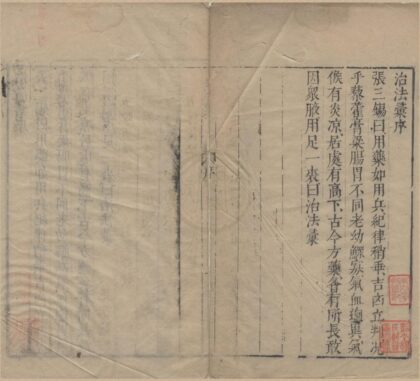 治法彙序
張三錫曰用藥如用兵紀律稍乖吉凶立判况
乎藜藿膏粱腸胃不同老幼鰥寡氣血逈異氣
候有炎凉居處有高下古今方藥各有所長敢
因眾腋用足一裘曰治法彙